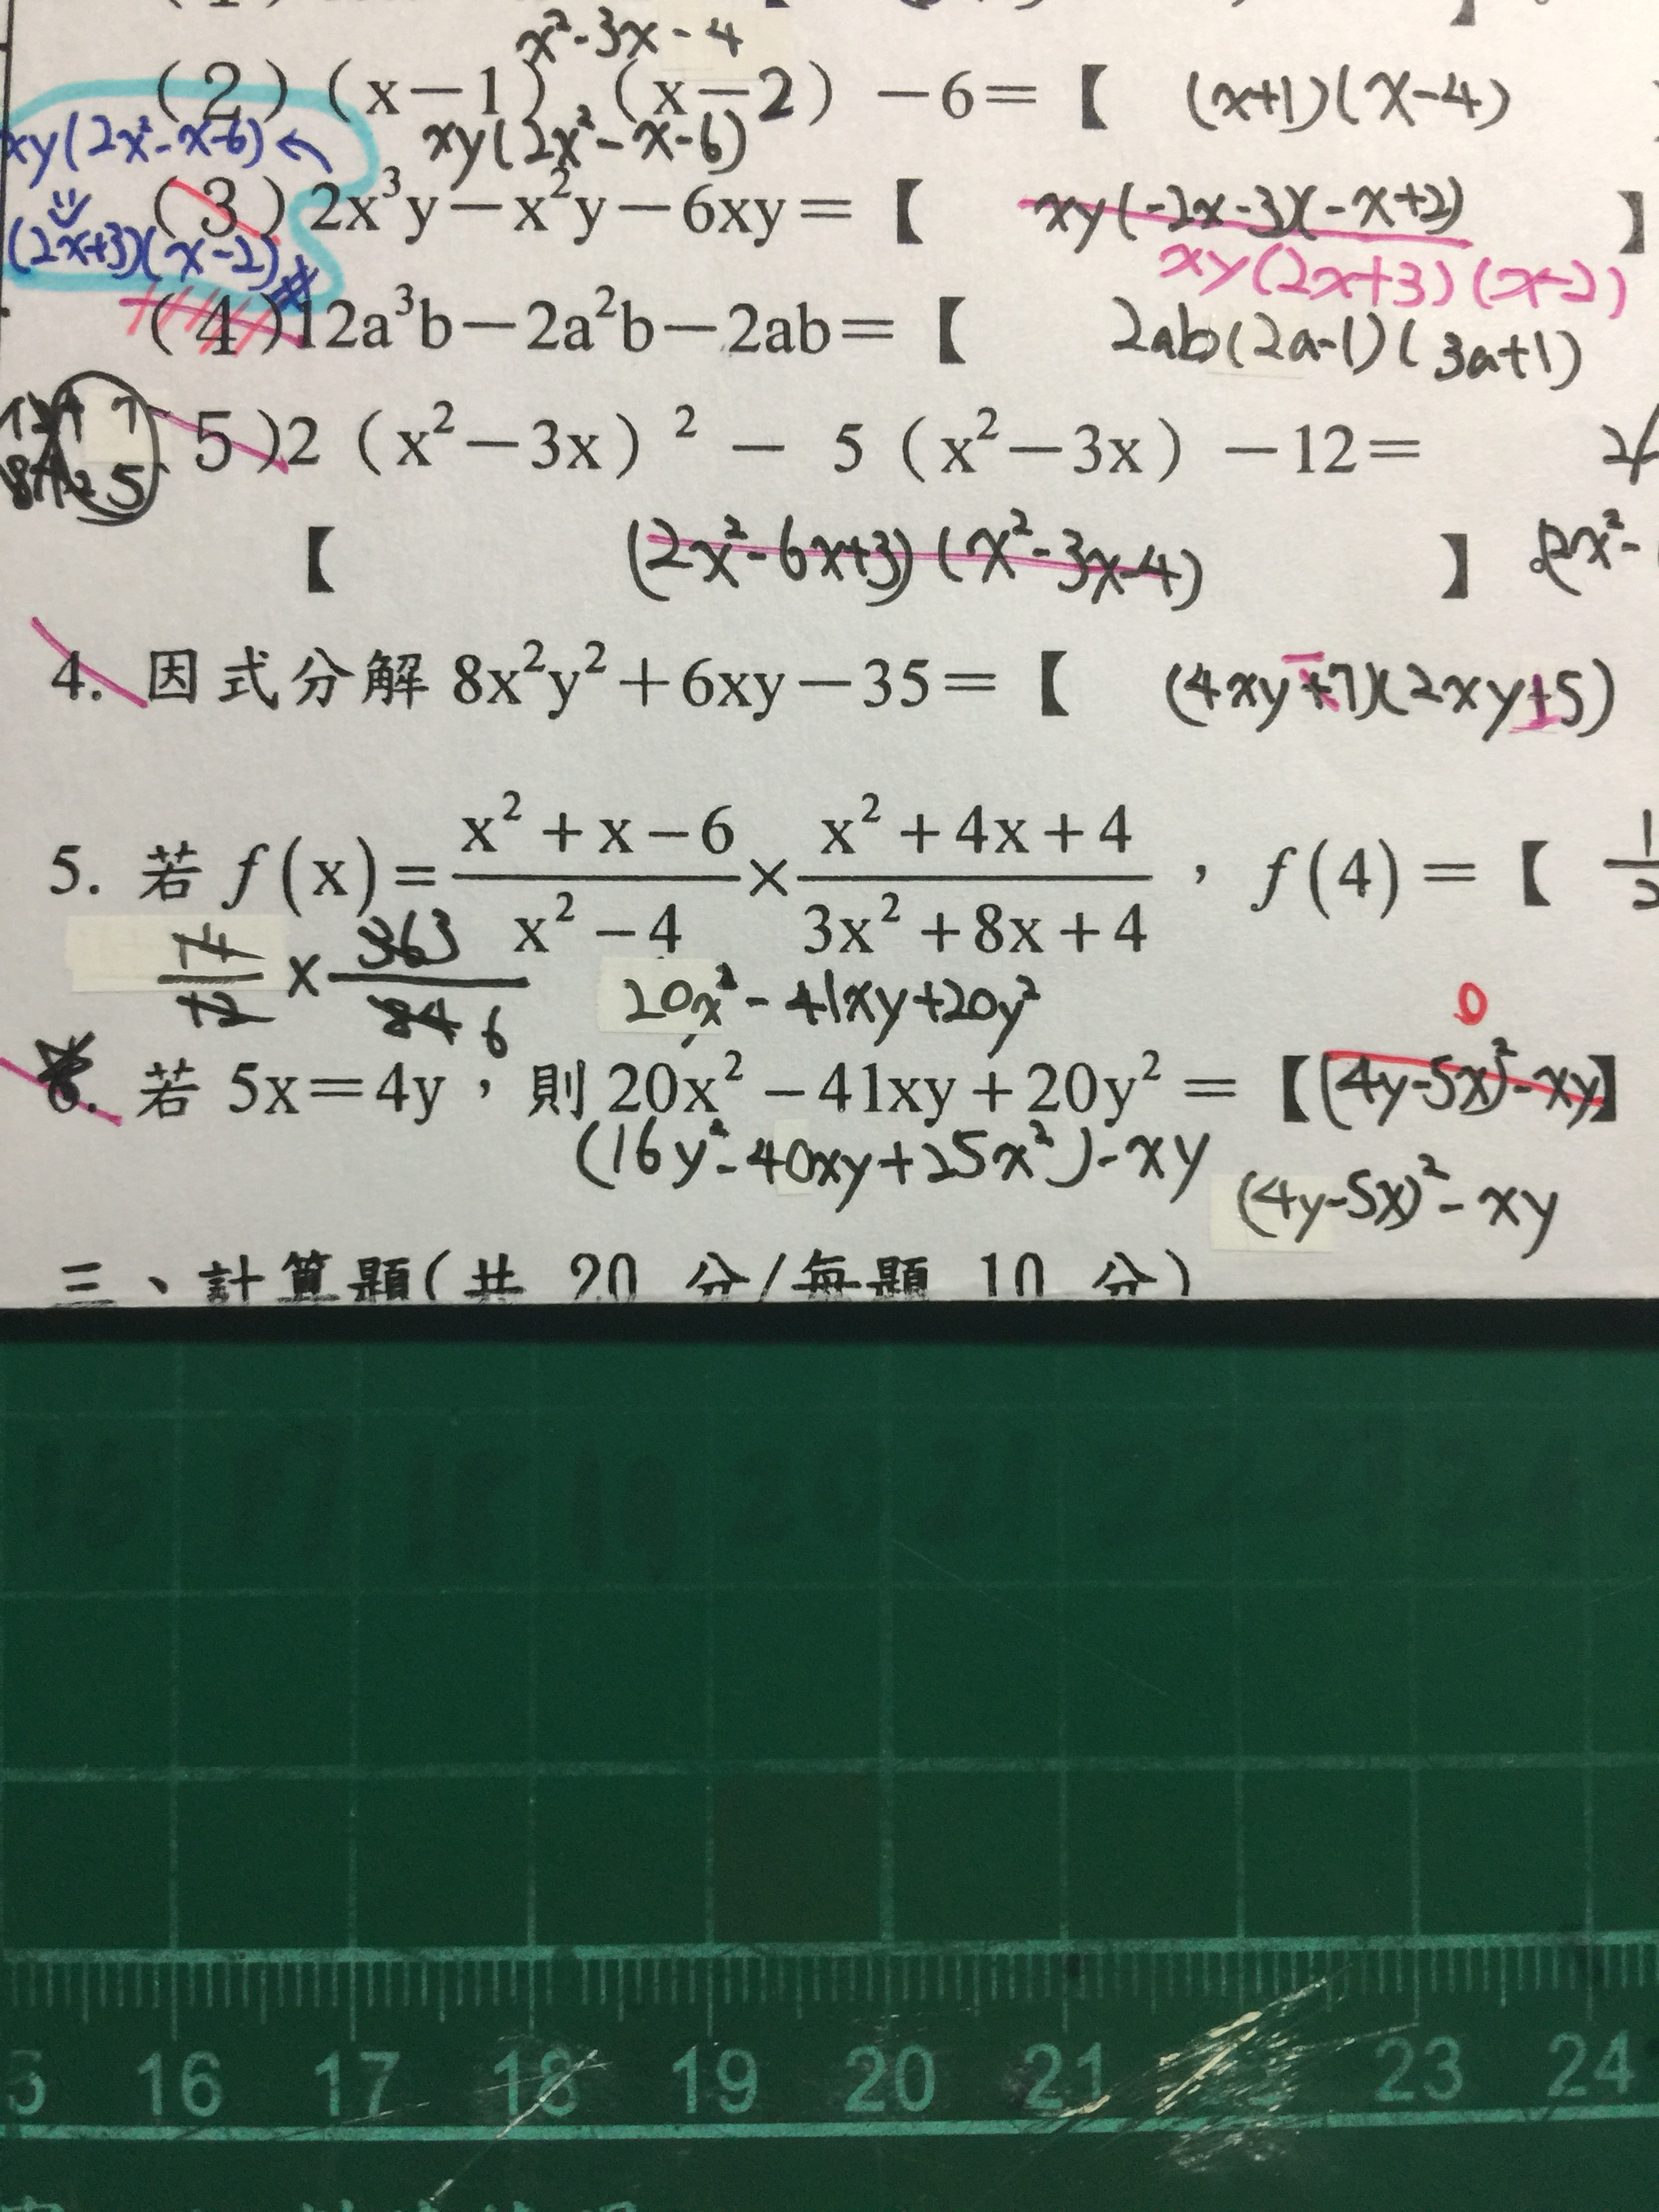 x²-3x-4
(2) (x-1) (x-2) -6=【 (x+1)(x-4)
xy(2x²-x-6) ← xy(2x²-x-6)
(3) 2x³y-x²y-6xy=【 xy(-2x-3)(-x+2) 】
(2x+3)(x-2) xy(2x+3)(x-2)
(4) 12a³b-2a²b-2ab=【 2ab(2a-1)(3a+1)
5) 2 (x²-3x) ² - 5 (x²-3x) -12=
【 (2x²-6x+3)(x²-3x-4) 】 (2x²-
4. 因式分解 8x²y²+6xy-35=【 (4xy+7)(2xy+5)
-
5. 若 f(x)= (x²+x-6)/(x²-4) × (x²+4x+4)/(3x²+8x+4) , f(4) =【 1/2
14/12 × 36 3/84 6
20x²-41xy+20y²
0
6. 若 5x=4y,則 20x²-41xy+20y² =【(4y-5x)²-xy】
(16y²-40xy+25x²)-xy
(4y-5x)²-xy
三、計算題(共 20 分/每題 10 分)
16 17 18 19 20 21 23 24